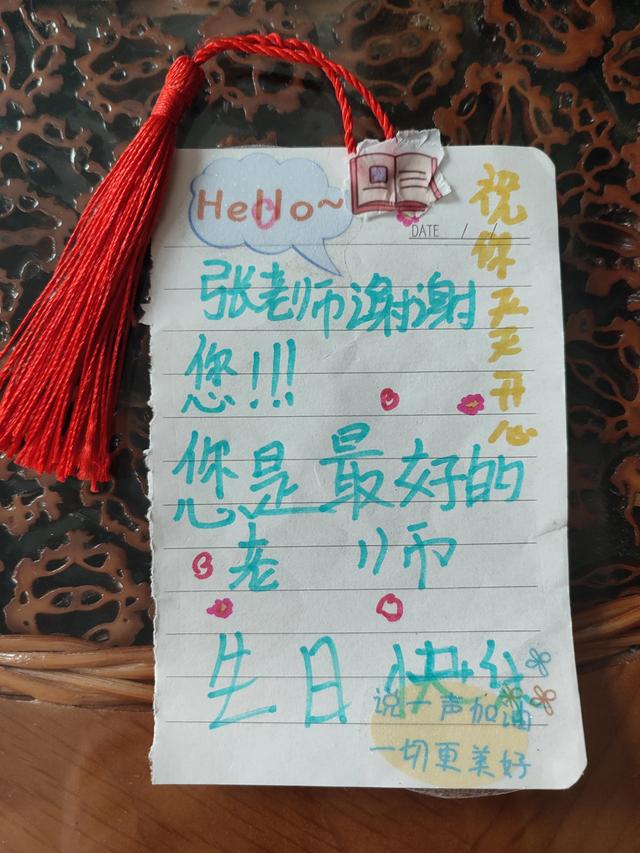 Hello~
DATE / /
祝你天天开心
张老师谢谢
您!!!
您是最好的
老师
生日快乐
说一声加油
一切更美好